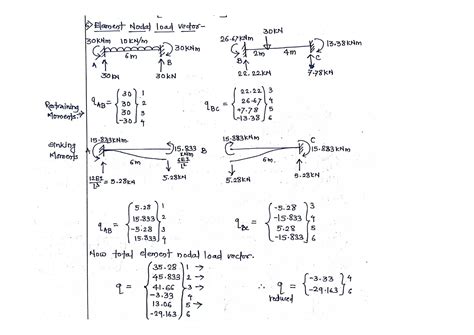 Element Nodal load vector-
30KNm 10KN/m 30KNm
6m
A B
30KN 30KN
30KN
26.67KNm 13.38KNm
2m 4m
B C
22.22KN 7.78KN
Retraining Moments→
qAB = { 30 30 30 -30 } 1 2 3 4
qBC = { 22.22 26.67 +7.78 -13.38 } 3 4 5 6
Sinking Moments
15.833KNm
A 6m B
15.833 KNm
6EI/L²
12EI/L³ = 5.28KN 5.28KN
15.833KNm C
15.833KNm
6m
5.28KN 5.28KN
qAB = { 5.28 15.833 -5.28 15.833 } 1 2 3 4
qBC = { -5.28 -15.833 5.28 -15.833 } 3 4 5 6
Now total element nodal load vector.
q = { 35.28 45.833 41.66 -3.33 13.06 -29.163 } 1→ 2→ 3→ 4 5→ 6
∴ q reduced = { -3.33 -29.163 } 4 6